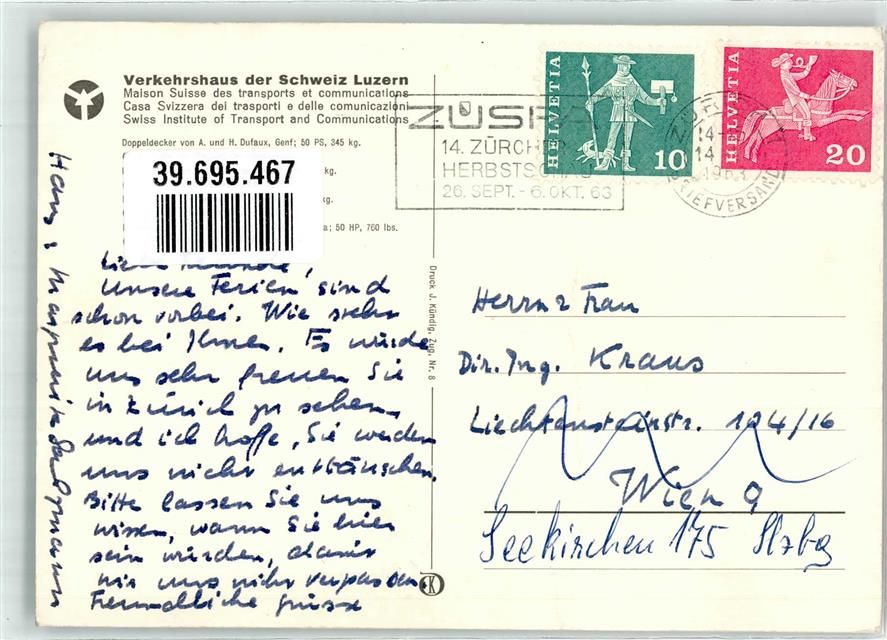 Verkehrshaus der Schweiz Luzern
Maison Suisse des transports et communications
Casa Svizzera dei trasporti e delle comunicazioni
Swiss Institute of Transport and Communications
Doppeldecker von A. und H. Dufaux, Genf; 50 PS, 345 kg.
kg.
kg.
50 HP, 760 lbs.
39.695.467
ZÜSPA
14. ZÜRCHER
HERBSTSCHAU
26. SEPT. - 6. OKT. 63
HELVETIA
10
HELVETIA
20
14
1963
BRIEFVERSAND
Liebe
Unsere Ferien sind
schon vorbei. Wie steht
es bei Ihnen. Es würde
uns sehr freuen Sie
in Zürich zu sehen
und ich hoffe, Sie werden
uns nicht enttäuschen.
Bitte lassen Sie uns
wissen, wann Sie hier
sein würden, damit
wir uns nicht verpassen.
Freundliche Grüsse
Hans
Druck J. Kündig, Zug, Nr. 8
Herrn & Frau
Dir. Ing. Kraus
Liechtensteinstr. 124/16
Wien 9
Seekirchen 175 Slzbg